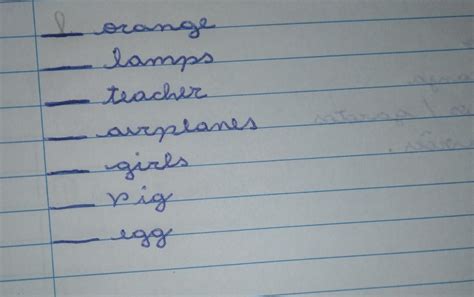 ___ orange
___ lamps
___ teacher
___ airplanes
___ girls
___ pig
___ egg